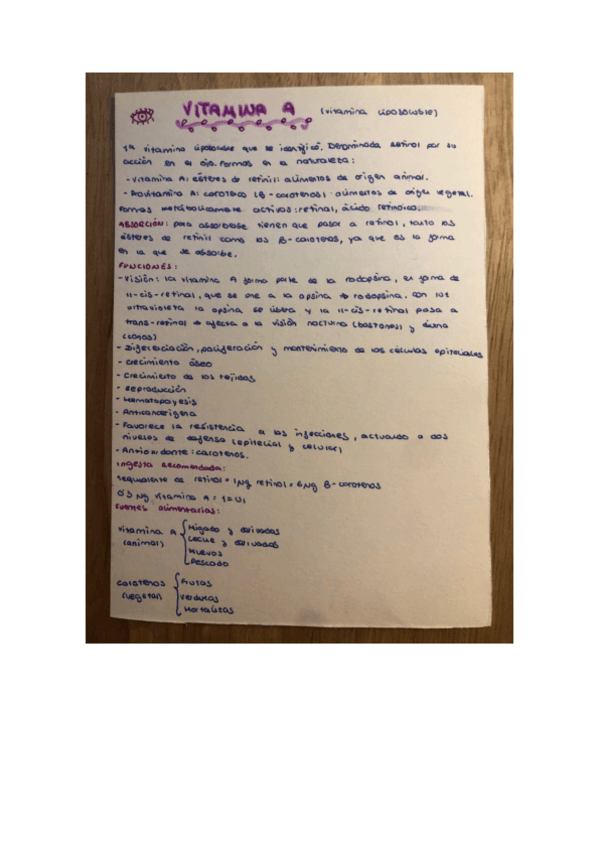 VITAMINA A (vitamina liposoluble)
1ª vitamina liposoluble que se identificó. Denominada retinol por su
acción en el ojo. Formas en la naturaleza:
- Vitamina A: ésteres de retinil: alimentos de origen animal.
- Provitamina A: caroteno (β-carotenos): alimentos de origen vegetal.
Formas metabólicamente activas: retinal, ácido retinoico.
ABSORCIÓN: para absorberse tienen que pasar a retinol, tanto los
ésteres de retinil como los β-carotenos, ya que es la forma
en la que se absorbe.
FUNCIONES:
- Visión: la vitamina A forma parte de la rodopsina, en forma de
11-cis-retinal, que se une a la opsina → rodopsina. Con luz
ultravioleta la opsina se libera y la 11-cis-retinal pasa a
trans-retinal → afecta a la visión nocturna (bastones) y diurna
(conos)
- Diferenciación, proliferación y mantenimiento de las células epiteliales
- Crecimiento óseo
- Crecimiento de los tejidos
- Reproducción
- Hematopoyesis
- Anticancerígena
- Favorece la resistencia a las infecciones, actuando a dos
niveles de defensa (epitelial y celular)
- Antioxidante: carotenos.
Ingesta recomendada:
1 equivalente de retinol = 1µg retinol = 6µg β-carotenos
0'3 µg vitamina A = 1 UI
Fuentes alimentarias:
Vitamina A { Hígado y derivados
(animal) Leche y derivados
Huevos
Pescado
Carotenos { Frutas
(vegetal) Verduras
Hortalizas